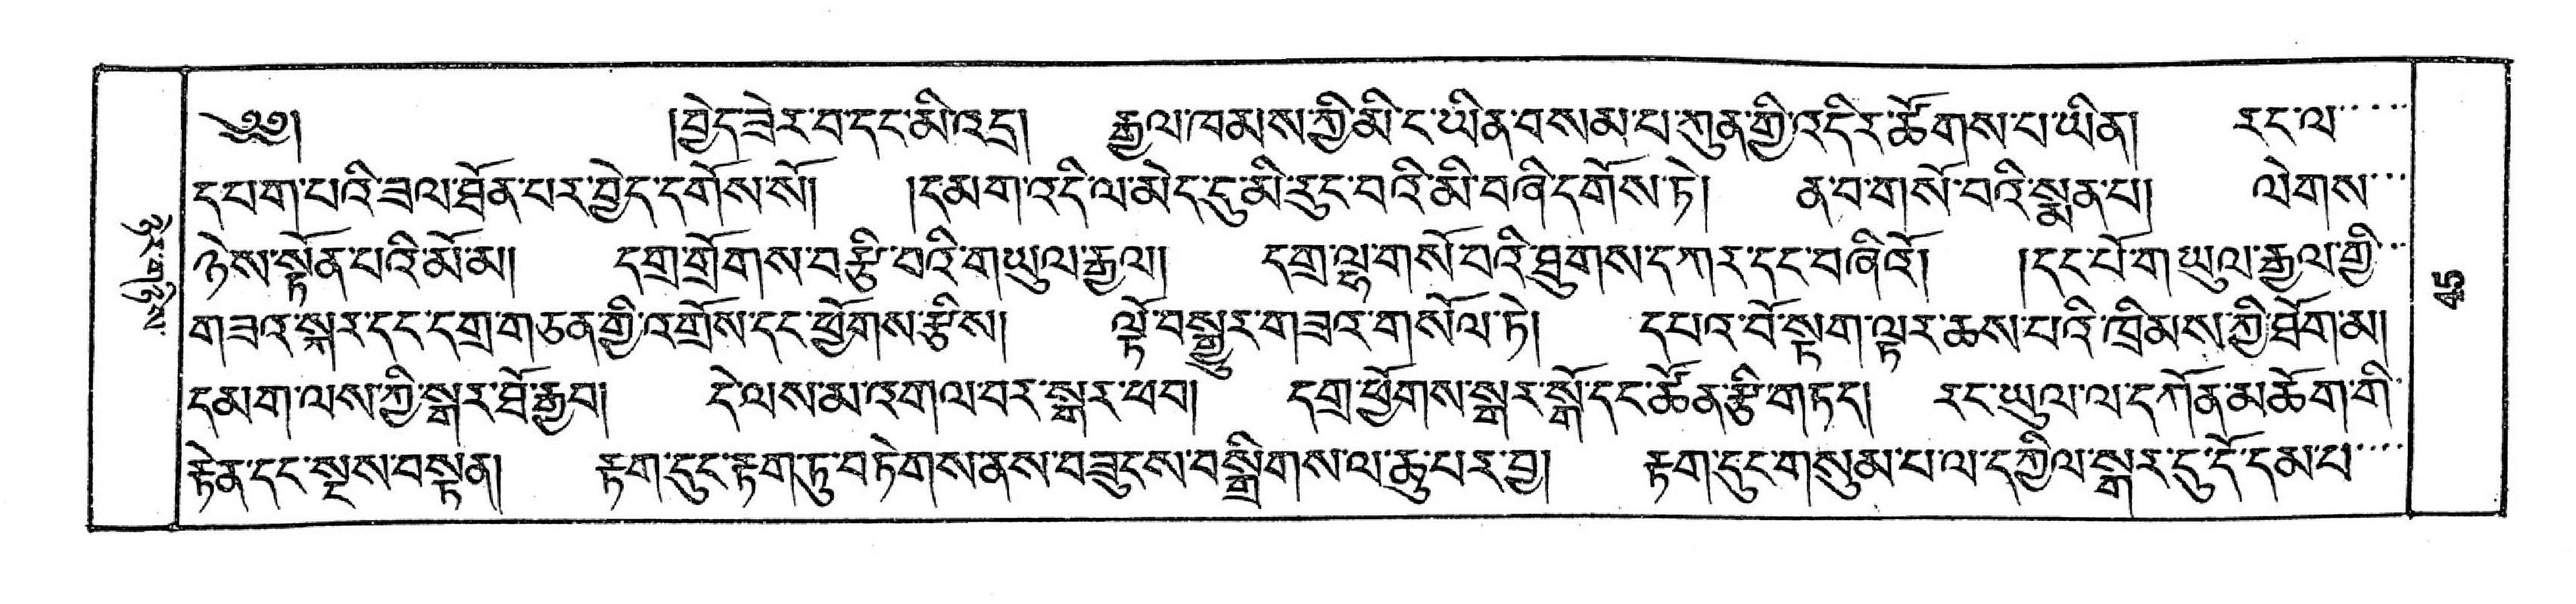 ༄༅། །བྱེད་ཟེར་བ་དང་མི་འདྲ། རྒྱལ་ཁམས་ཀྱི་མི་ང་ཡིན་བསམ་པ་ཀུན་གྱི་འདིར་ཚོགས་པ་ཡིན། རང་ལ་
དཔག་པའི་ཟལ་ཐོན་པར་བྱེད་དགོས་སོ། །དམག་འདི་ལ་མེད་དུ་མི་རུང་བའི་མི་བཞི་དགོས་ཏེ། ན་བ་གསོ་བའི་སྨན་པ། ལེགས་
ཉེས་སྟོན་པའི་མོ་མ། དགྲ་གྲོགས་བརྩི་བའི་གཡུལ་རྒྱལ། དགྲ་ལྷ་གསོ་བའི་ཐུགས་དཀར་དང་བཞིའོ། །དང་པོ་གཡུལ་རྒྱལ་གྱི་
གཟའ་སྐར་དང་དགྲ་གཅན་གྱི་འགྲོས་དང་ཕྱོགས་རྩིས། ལྟོ་བསྒྱུར་གཟའ་གསོལ་ཏེ། དཔའ་བོ་སྟག་ལྟར་ཆས་པའི་ཁྲིམས་ཀྱི་ཐོག་མ།
དམག་ལས་ཀྱི་སྒར་ཐོ་རྒྱབ། དེ་ལས་མ་འགལ་བར་སྒར་ཕབ། དགྲ་ཕྱོགས་སྒར་སྒོ་དང་ཚོན་རྩི་གཏད། རང་ཡུལ་ལ་དཀོན་མཆོག་གི་
རྟེན་དང་སྔས་བསྟན། རྟག་དུང་རྟག་ཏུ་བཏེགས་ནས་བཟུངས་བསྒྲིགས་ལ་ཆུ་པར་བྱ། རྟག་དུང་གསུམ་པ་ལ་དཀྱིལ་སྒར་དུ་དོ་དམ་པ་